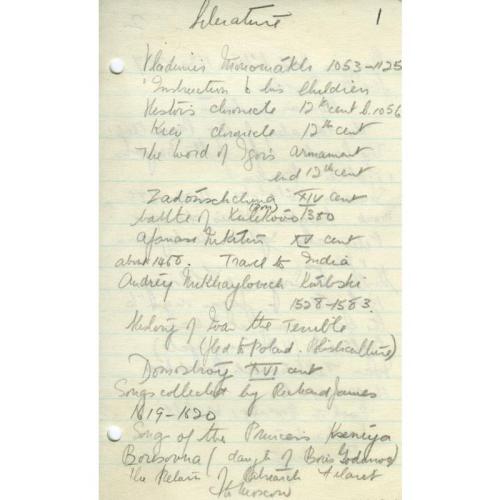 Literature 1
Vladimir Monomakh 1053-1125
Instruction to his Children
Nestor's chronicle 12th cent b. 1056
Kiev chronicle 12th cent
The Word of Igor's armament
end 12th cent
Zadonshchina XIV cent
battle of Kulikovo 1380
Afanasi Nikitin XV cent
about 1468. Travel to India
Andréy Mikhaylovich Kurbski
1528-1583.
History of Ivan the Terrible
(fled to Poland.
Domostroy XVI cent
Songs collected by Richard James
1619-1620
Songs of the Princess Kseniya
Borisovna (daught of Boris Godunov)
The Return of Patriarch Filaret
to Moscow